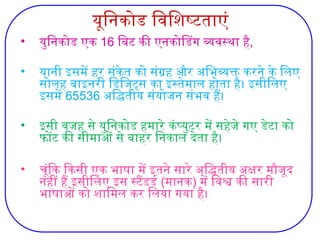 यूनिकोड विशिष्टताएं
• युनिकोड एक 16 बिट की एनकोडिंग व्यवस्था है,
• यानी इसमें हर संकेत को संग्रह और अभिव्यक्त करने के लिए
सोलह बाइनरी डिजिट्स का इस्तेमाल होता है। इसीलिए
इसमें 65536 अद्वितीय संयोजन संभव हैं।
• इसी वजह से यूनिकोड हमारे कंप्यूटर में सहेजे गए डेटा को
फोंट की सीमाओं से बाहर निकाल देता है।
• चूंकि किसी एक भाषा में इतने सारे अद्वितीय अक्षर मौजूद
नहीं हैं इसीलिए इस स्टैंडर्ड (मानक) में विश्व की सारी
भाषाओं को शामिल कर लिया गया है।